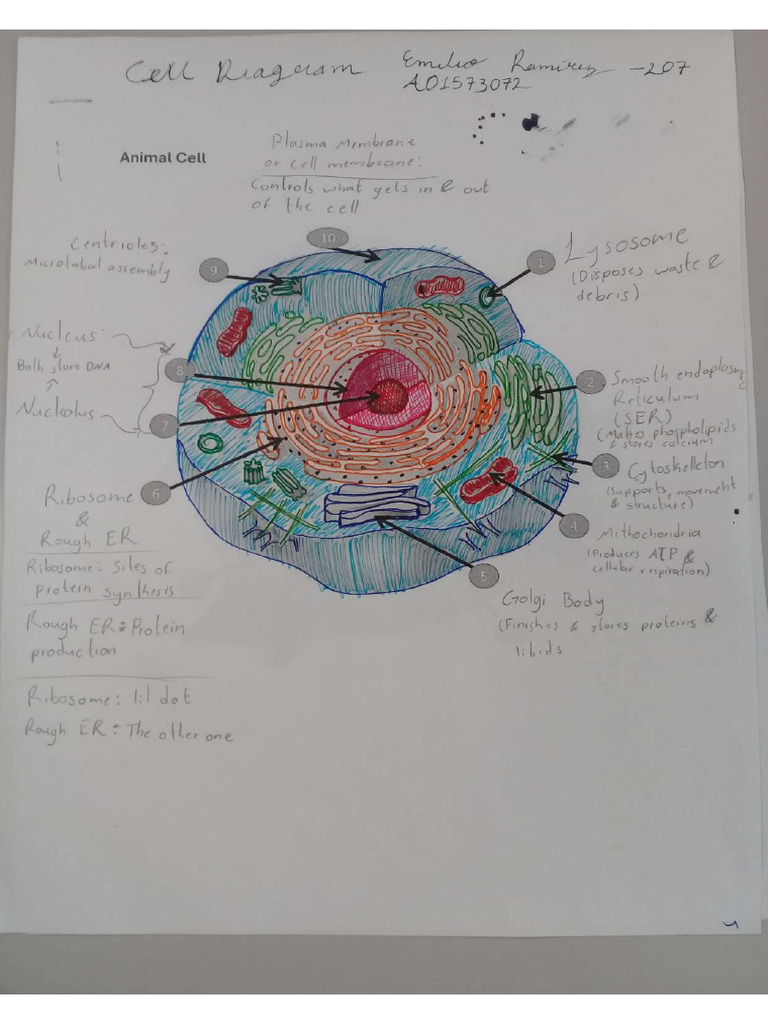 Cell Diagram
Emilio Ramírez -207
A01573072
Animal Cell
Plasma Membrane
or Cell membrane:
Controls what gets in & out
of the cell
Centrioles:
Microtubal assembly
10
9
1
Lysosome
(Disposes waste &
debris)
Nucleus:
Both store DNA
Nuckolus
8
7
2
Smooth endoplasmic
Reticulum
(SER)
(Makes phospholipids
& stores calcium
3
Cytoskelcton
(supports, movement
& structure)
6
Ribosome
&
Rough ER
Ribosome: Sites of
protein synthesis
Rough ER: Protein
production
Ribosome: lil dot
Rough ER: The other one
4
Mithochoridria
(Produces ATP &
cellular respiration)
5
Golgi Body
(Finishes & stores proteins &
libids